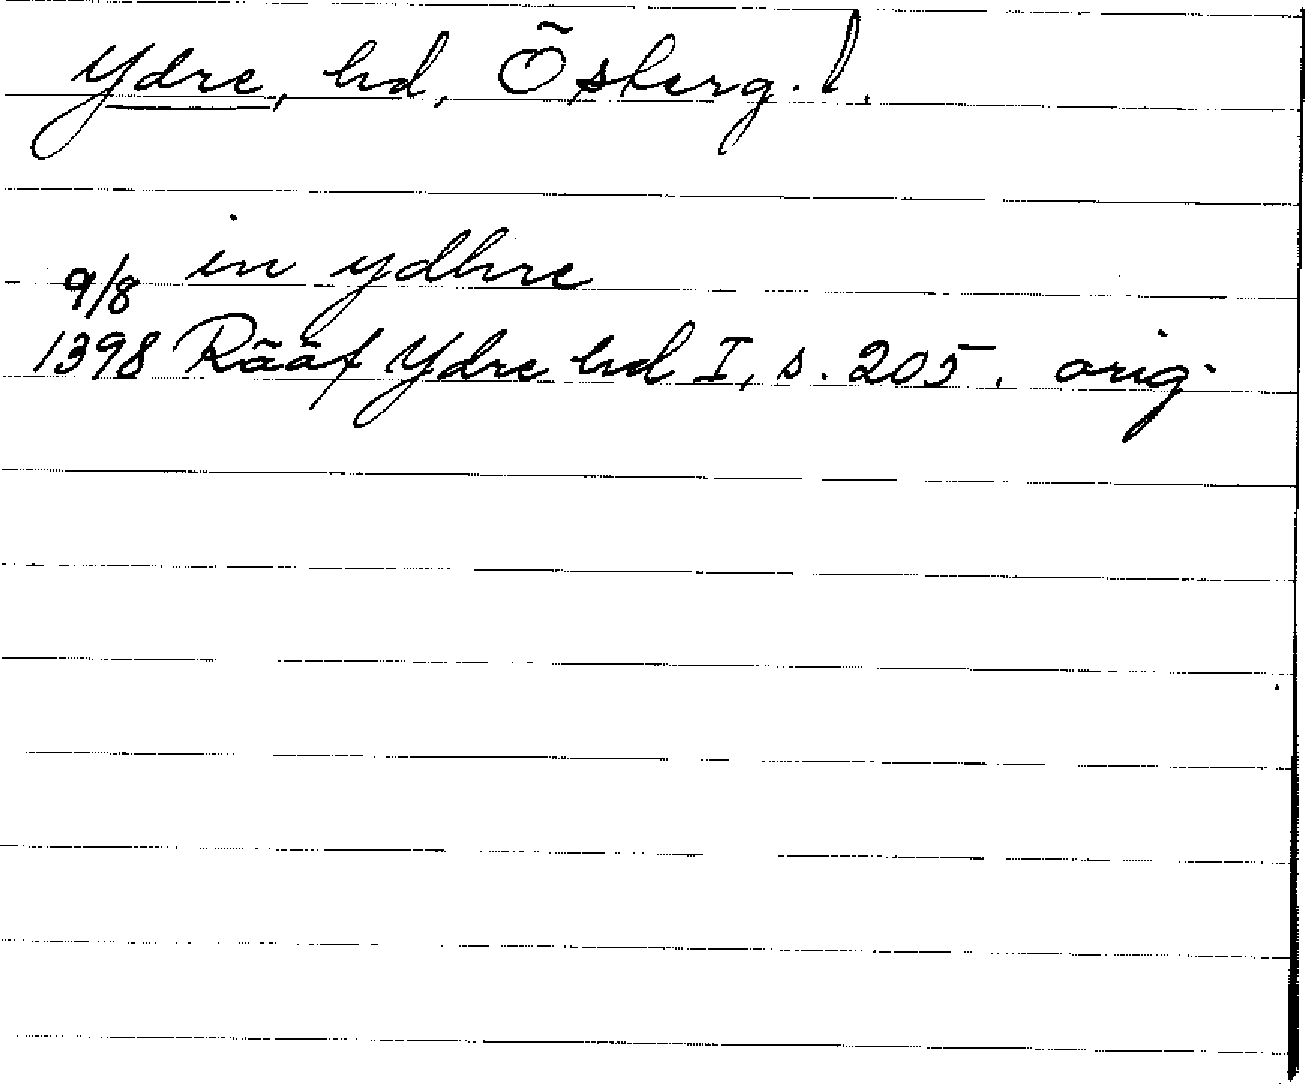 Ydre, hd, Östberg. l.
in ydhre
9/8
1398 Rääf Ydre hd I, s. 205. orig.